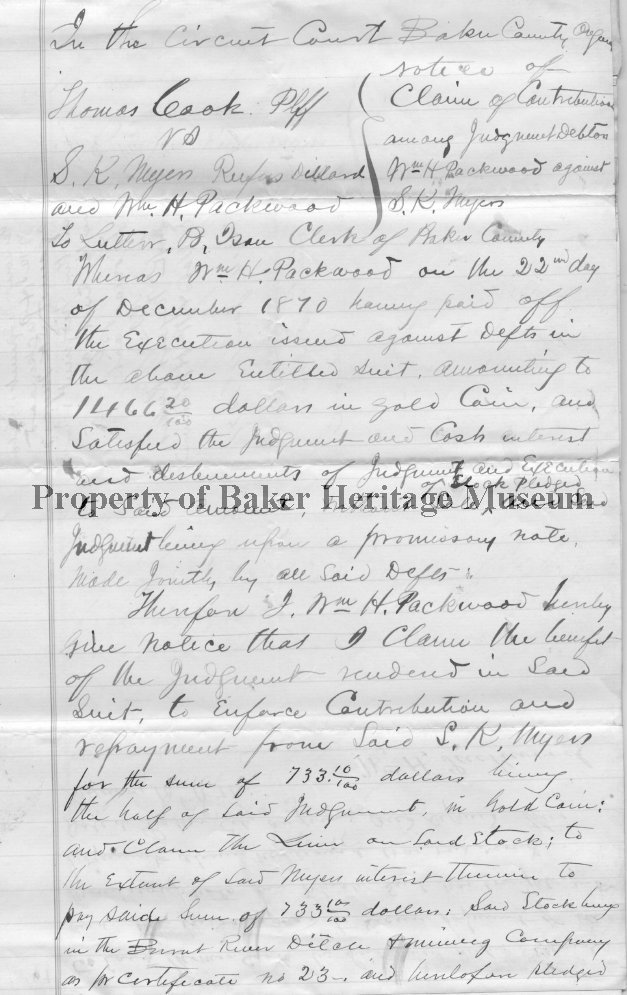 In the Circuit Court Baker County Oregon
Thomas Cook Plff
VS
S. K. Myers Rufus Dillard
and Wm. H. Packwood
Notice of
Claim of Contribution
among Judgment Debtors
Wm H. Packwood against
S. K. Myers
To Luther, B, Ison Clerk of Baker County
Whereas Wm H. Packwood on the 22nd day
of December 1870 having paid off
the Execution issued against Defts in
the above Entitled Suit, amounting to
1466 20/100 dollars in gold Coin, and
Satisfied the Judgment and Costs interest
and disbursements of Judgment and Execution
of Stock Pledged
Property of Baker Heritage Museum
to Said amount,
Judgment being upon a promissory note,
made Jointly by all Said Defts:
Therefore I, Wm H. Packwood hereby
give notice that I Claim the benefit
of the Judgment rendered in Said
Suit, to Enforce Contribution and
repayment from Said S. K. Myers
for the sum of 733 10/100 dollars being
the half of Said Judgment, in Gold Coin:
and Claim the Lien on Said Stock; to
the Extent of Said Myers interest therein to
pay said Sum of 733 10/100 dollars: Said Stock being
in the Burnt River Ditch & mining Company
as pr Certificate no 23—. and heretofore pledged